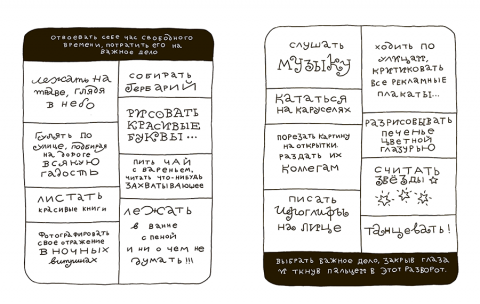 ОТВОЕВАТЬ СЕБЕ ЧАС СВОБОДНОГО
ВРЕМЕНИ, ПОТРАТИТЬ ЕГО НА
ВАЖНОЕ ДЕЛО
лежать на
траве, глядя
в небо
ГУЛЯТЬ ПО
УЛИЦЕ, подбирая
НА ДОРОГЕ
ВСЯКУЮ
ГАДОСТЬ
ЛИСТАТЬ
КРАСИВЫЕ КНИГИ
ФОТОГРАФИРОВАТЬ
СВОЕ ОТРАЖЕНИЕ
В НОЧНЫХ
витринах
СОБИРАТЬ
ГЕРБАРИЙ
РИСОВАТЬ
КРАСИВЫЕ
БУКВЫ...
ПИТЬ ЧАЙ
С ВАРЕНЬЕМ,
ЧИТАТЬ ЧТО-НИБУДЬ
ЗАХВАТЫВАЮЩЕЕ
ЛЕЖАТЬ
В ВАННЕ
С ПЕНОЙ
И НИ О ЧЕМ НЕ
ДУМАТЬ!!!
СЛУШАТЬ
МУЗЫКУ
КАТАТЬСЯ
НА КАРУСЕЛЯХ
ПОРЕЗАТЬ КАРТИНУ
НА ОТКРЫТКИ.
РАЗДАТЬ ИХ
КОЛЛЕГАМ
ПИСАТЬ
ИЕРОГЛИФЫ
НА ЛИЦЕ
ХОДИТЬ ПО
УЛИЦАМ,
КРИТИКОВАТЬ
ВСЕ РЕКЛАМНЫЕ
ПЛАКАТЫ...
РАЗРИСОВЫВАТЬ
ПЕЧЕНЬЕ
ЦВЕТНОЙ
ГЛАЗУРЬЮ
СЧИТАТЬ
ЗВЁЗДЫ
ТАНЦЕВАТЬ!
ВЫБРАТЬ ВАЖНОЕ ДЕЛО, ЗАКРЫВ ГЛАЗА
И ТКНУВ ПАЛЬЦЕМ В ЭТОТ РАЗВОРОТ.